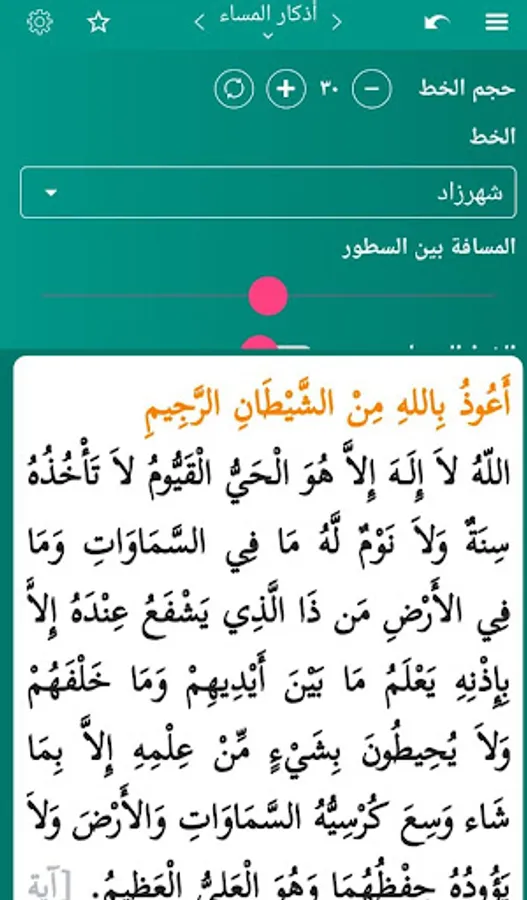 أذكار المساء
حجم الخط
٣٠
الخط
شهرزاد
المسافة بين السطور
أَعُوذُ بِاللهِ مِنْ الشَّيْطَانِ الرَّجِيمِ
اللّهُ لاَ إِلَـهَ إِلاَّ هُوَ الْحَيُّ الْقَيُّومُ لاَ تَأْخُذُهُ
سِنَةٌ وَلاَ نَوْمٌ لَّهُ مَا فِي السَّمَاوَاتِ وَمَا
فِي الأَرْضِ مَن ذَا الَّذِي يَشْفَعُ عِنْدَهُ إِلاَّ
بِإِذْنِهِ يَعْلَمُ مَا بَيْنَ أَيْدِيهِمْ وَمَا خَلْفَهُمْ
وَلاَ يُحِيطُونَ بِشَيْءٍ مِّنْ عِلْمِهِ إِلاَّ بِمَا
شَاء وَسِعَ كُرْسِيُّهُ السَّمَاوَاتِ وَالأَرْضَ وَلاَ
يَؤُودُهُ حِفْظُهُمَا وَهُوَ الْعَلِيُّ الْعَظِيمُ. [آية